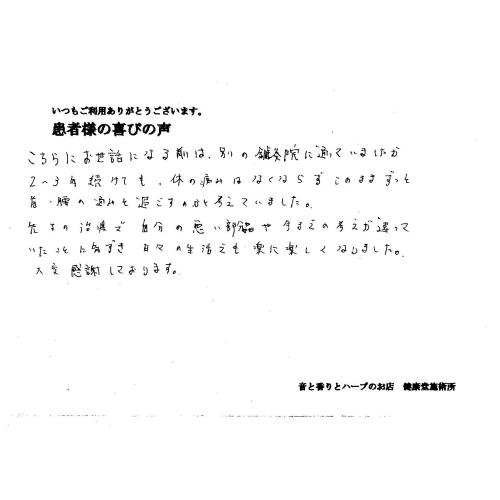 いつもご利用ありがとうございます。
患者様の喜びの声
こちらにお世話になる前は、別の鍼灸院に通っていましたが
2〜3年続けても、体の痛みはなくならず このままずっと
首・腰の痛みと過ごすのかと考えていました。
先生の治療で 自分の悪い部分や今までの考えが違って
いたことに気ずき 日々の生活さえも楽に楽しくなりました。
大変感謝しております。
音と香りとハーブのお店 健康堂施術所